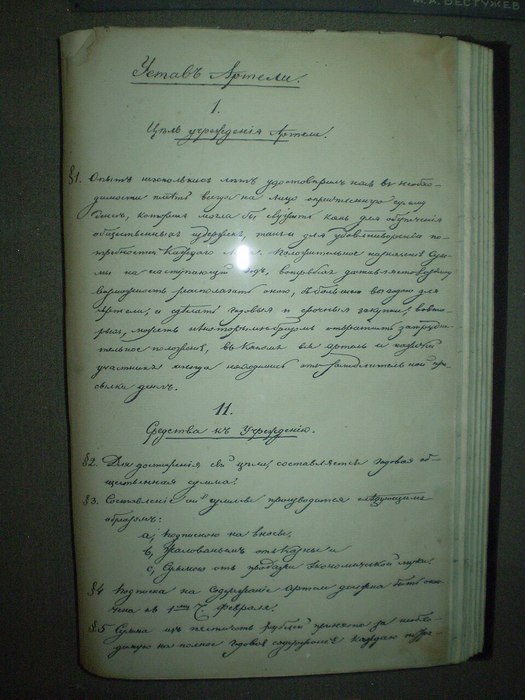 М. А. БЕСТУЖЕВ
Уставъ Артели.
I.
Цѣль учрежденія Артели.
§1. Опытъ несколькихъ лѣтъ удостовѣрилъ насъ въ необхо-
димости имѣть всегда на лицо опредѣленную сумму
денегъ, которая могла бы служить какъ для обезпеченія
общественныхъ издержекъ, такъ и для удовлетворенія по-
требностей каждаго Положительное назначеніе сум-
мы на наступающій годъ, вопервыхъ доставляетъ
возможность располагать оною, съ большею выгодою для
Артели, и сдѣлать годовыя и срочныя закупки; вовто-
рыхъ, можетъ отвратить затрудни-
тельное положеніе, въ какомъ вся артель и каждый
участникъ иногда находились отъ замедлительной при-
сылки денегъ.
II.
Средства къ Учрежденію.
§2. Для достиженія сей цѣли, составляется годовая об-
щественная сумма:
§3. Составленіе сей суммы производится слѣдующимъ
образомъ:
а, подпискою на взносы,
b, Жалованьемъ отъ казны и
с, Суммою отъ продажи экономической муки.
§4 Подписка на Содержаніе Артели должна быть окон-
чена къ 1му Ч. февраля.
§5 Сумма изъ рублей принята за необхо-
димую на полное годовое содержаніе каждаго